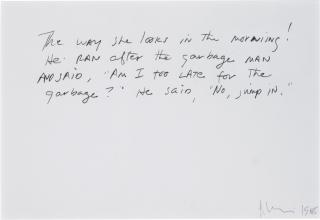 The way she looks in the morning!
He RAN after the garbage MAN
AND SAID, "Am I too LATE for The
garbage?" He said, "No, jump in."
1986